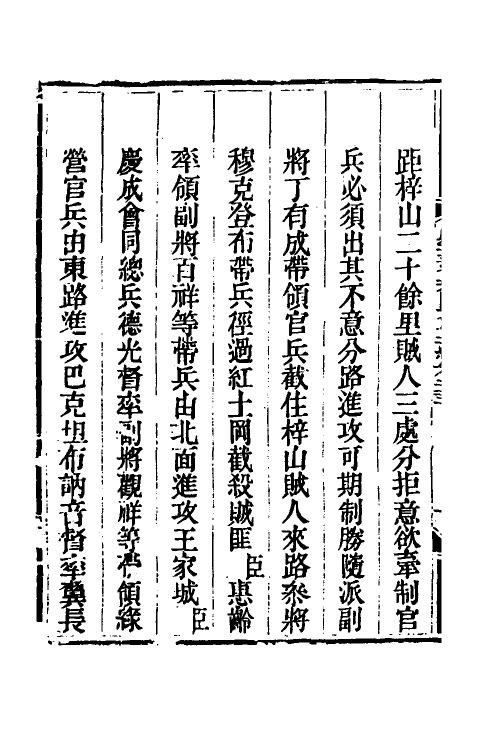 距梓山二十餘里賊人三處分拒意欲牽制官
兵必須出其不意分路進攻可期制勝隨派副
將丁有成帶領官兵截住梓山賊人來路叅將
穆克登布帶兵徑過紅土岡截殺賊匪臣惠齡
率領副將百祥等帶兵由北面進攻王家城臣
慶成會同總兵德光督率副將觀祥等帶領綠
營官兵由東路進攻巴克坦布訥音督率奠長